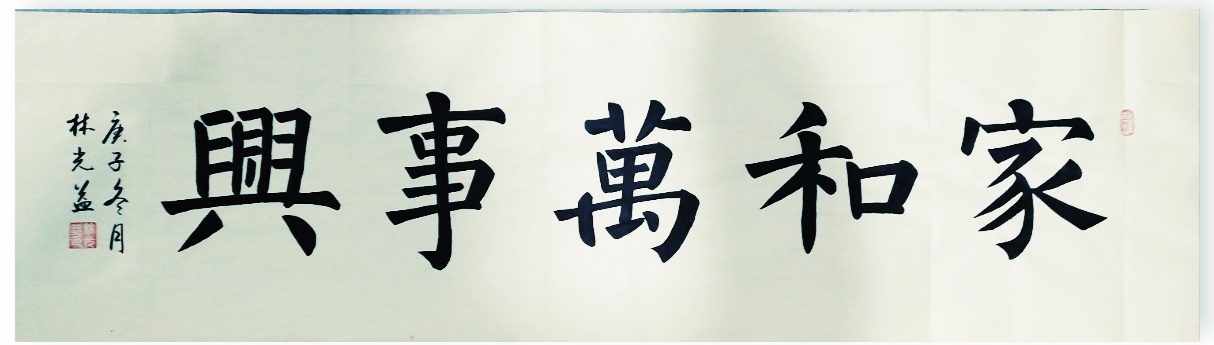 家和萬事興
庚子冬月
林光益